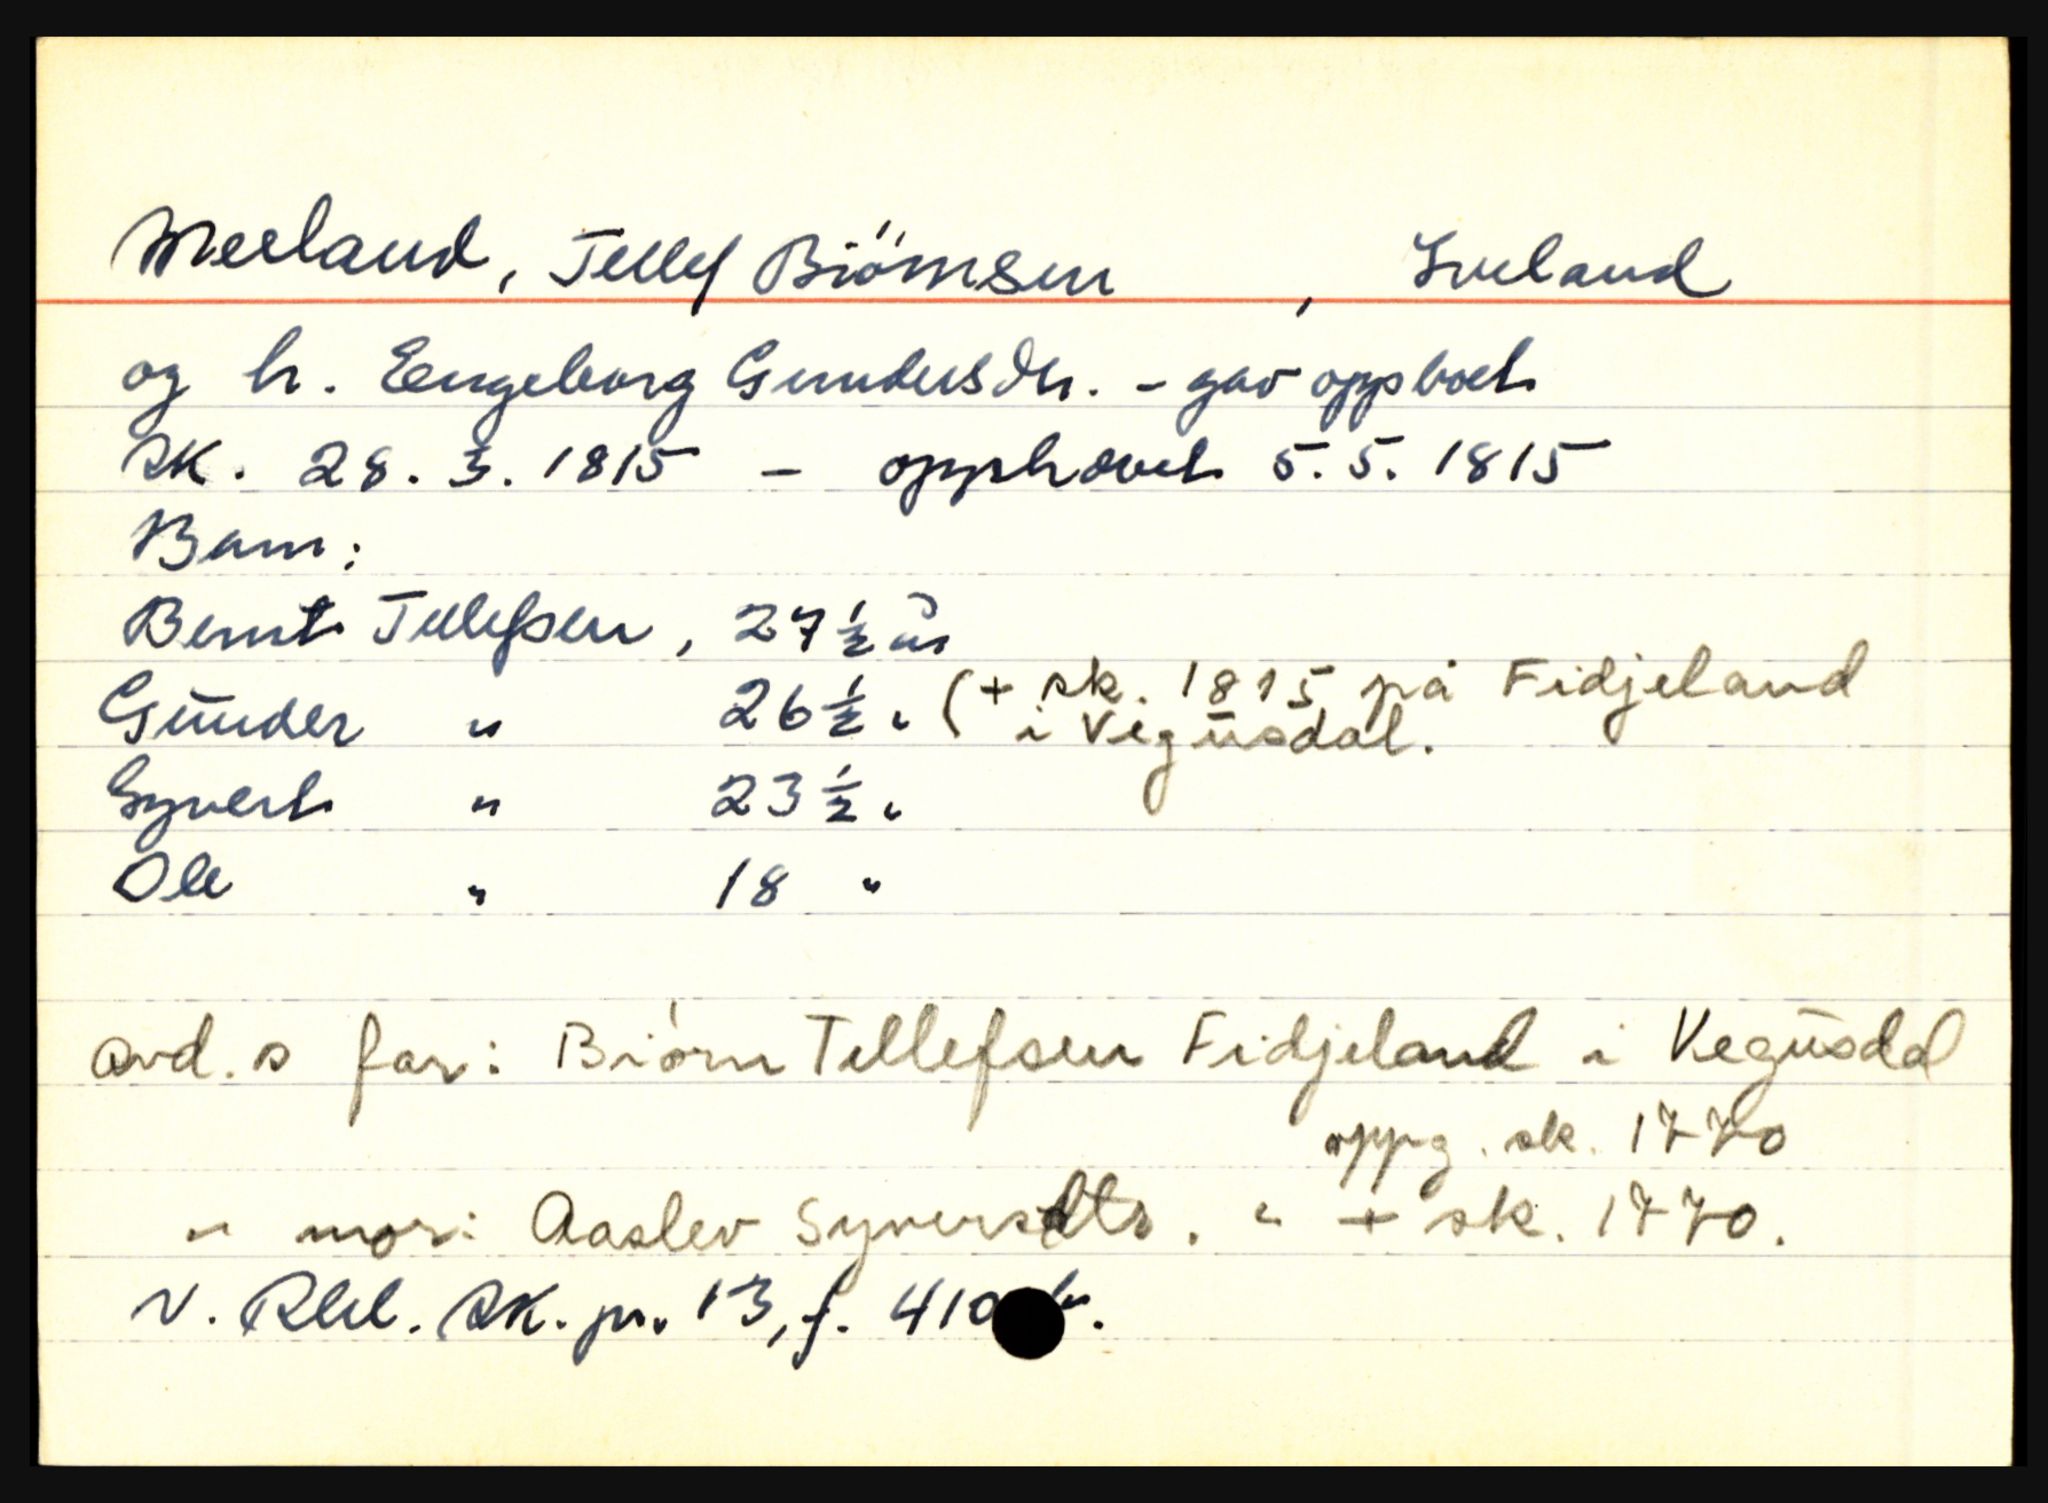 Meeland, Tellef Biörnsen, Iveland
og h. Eengeborg Gundersdtr. - gav opp boet
SK. 28. 3. 1815 - opphævet 5. 5. 1815
Barn:
Bernt Tellefsen, 27 1/2 år
Gunder " 26 1/2 " (+ sk. 1815 på Fidjeland
i Vegusdal.
Syvert " 23 1/2 "
Ole " 18 "
avd. s far: Biørn Tellefsen Fidjeland i Vegusdal
oppg. sk. 1770
" mor: Aaslev Syversdtr. " + sk. 1770.
N. Rbl. SK. pr. 13, f. 410